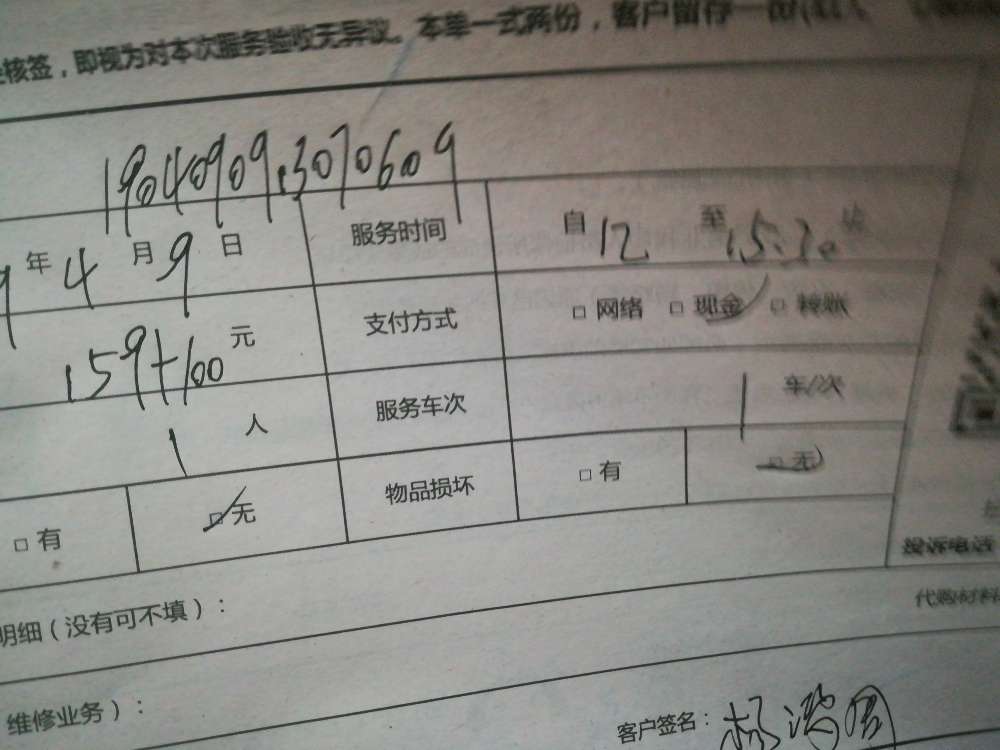 核签，即视为对本次服务验收无异议。本单一式两份，客户留存一
19040909.3070609
9年4月9日 服务时间 自12至15:30
159+100元 支付方式 □网络 □现金 □转账
1人 服务车次 1车/次
□有 □无 物品损坏 □有 □无
投诉电话
明细（没有可不填）： 代购材料
维修业务）： 客户签名：